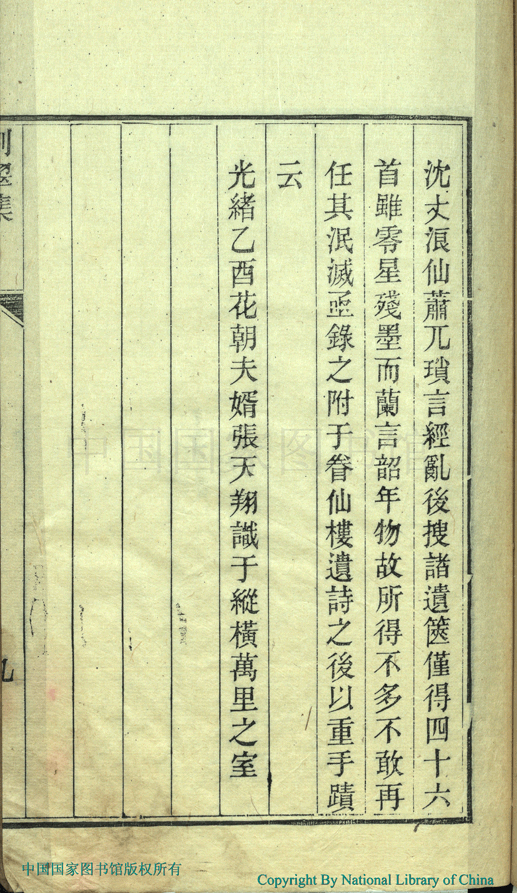 沈丈浪仙蕭兀瑣言經亂後搜諸遺篋僅得四十六
首雖零星殘墨而蘭言韶年物故所得不多不敢再
任其泯滅亟錄之附于眷仙樓遺詩之後以重手蹟
云
光緒乙酉花朝夫婿張天翔識于縱橫萬里之室
集
九
中国国家图书馆
中国国家图书馆版权所有
Copyright By National Library of China